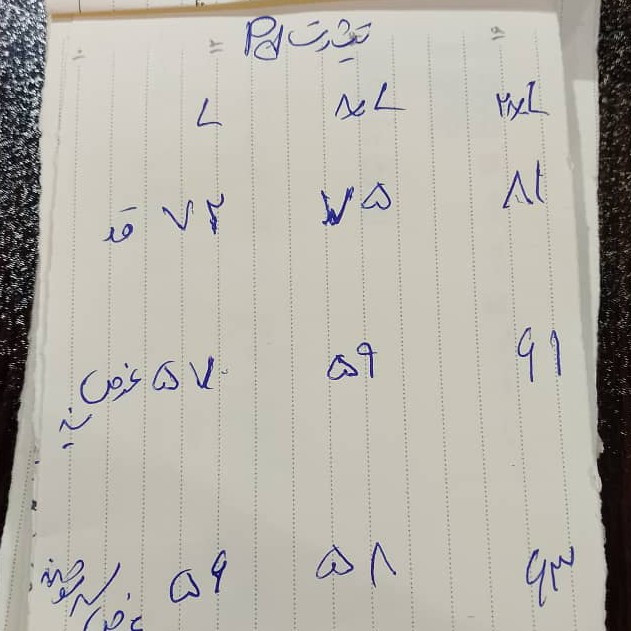 تیشرت Pd
L XL ۲XL
قد ۷۲ ۷۵ ۸۱
عرض سینه ۵۷ ۵۹ ۶۱
عرض ۵۶ ۵۸ ۶۳